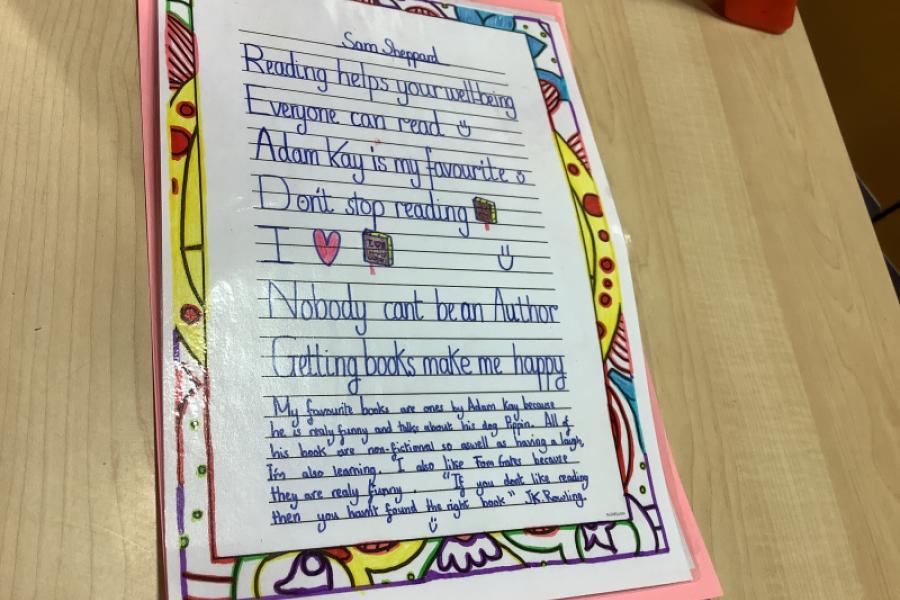 Sam Sheppard
Reading helps your well-being
Everyone can read
Adam Kay is my favourite
Don't stop reading
I
Nobody cant be an Author
Getting books make me happy
My favourite books are ones by Adam Kay because
he is realy funny and talks about his dog Pippin. All of
his book are non-fictional so aswell as having a laugh,
I'm also learning. I also like Tom Gates because
they are realy funny. "If you dont like reading
then you havn't found the right book" JK.Rowling.